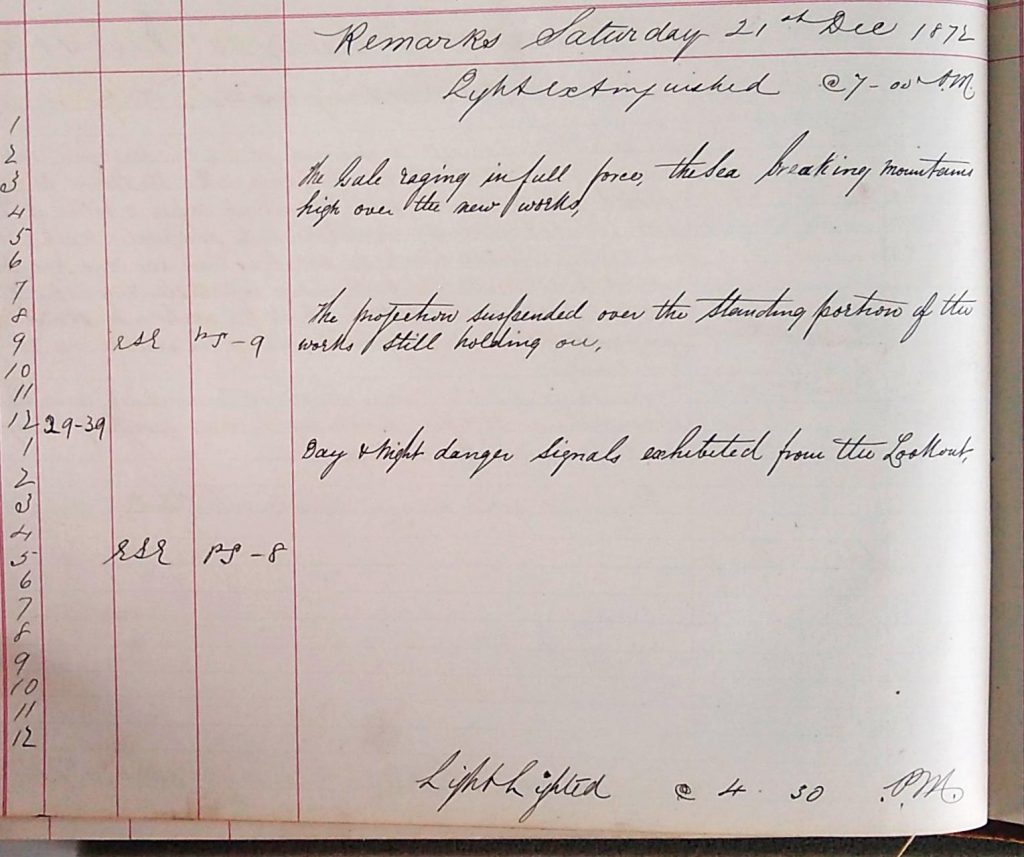 Remarks Saturday 21st Dec 1872
Light extinguished @ 7-00 A.M.
1
2
3 The Gale raging in full force, the Sea breaking mountains
4 high over the new works,
5
6
7
8 The projection suspended over the standing portion of the
9 ESE PS-9 works still holding on,
10
11
12 29-39
1 Day & Night danger signals exhibeted from the Lookout,
2
3
4
5 ESE PS-8
6
7
8
9
10
11
12
Light Lighted @ 4 30 P.M.